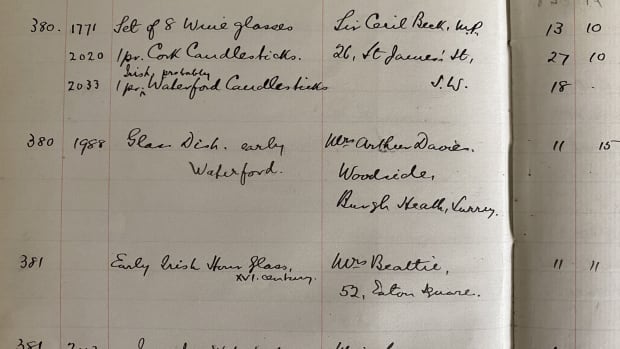 380. 1771 Set of 8 Wine glasses Sir Cecil Beck, M.P. 13 10
2020 1 pr. Cork Candlesticks. 26, St James's St, 27 10
Irish, probably
2033 1 pr. ^ Waterford Candlesticks S.W. 18 -
380 1988 Glass Dish. early Mrs Arthur Davies. 11 15
Waterford. Woodside,
Burgh Heath, Surrey.
381 Early Irish Hour Glass, Mrs Beattie, 11 11
XVI. century. 52, Eaton Square.
381